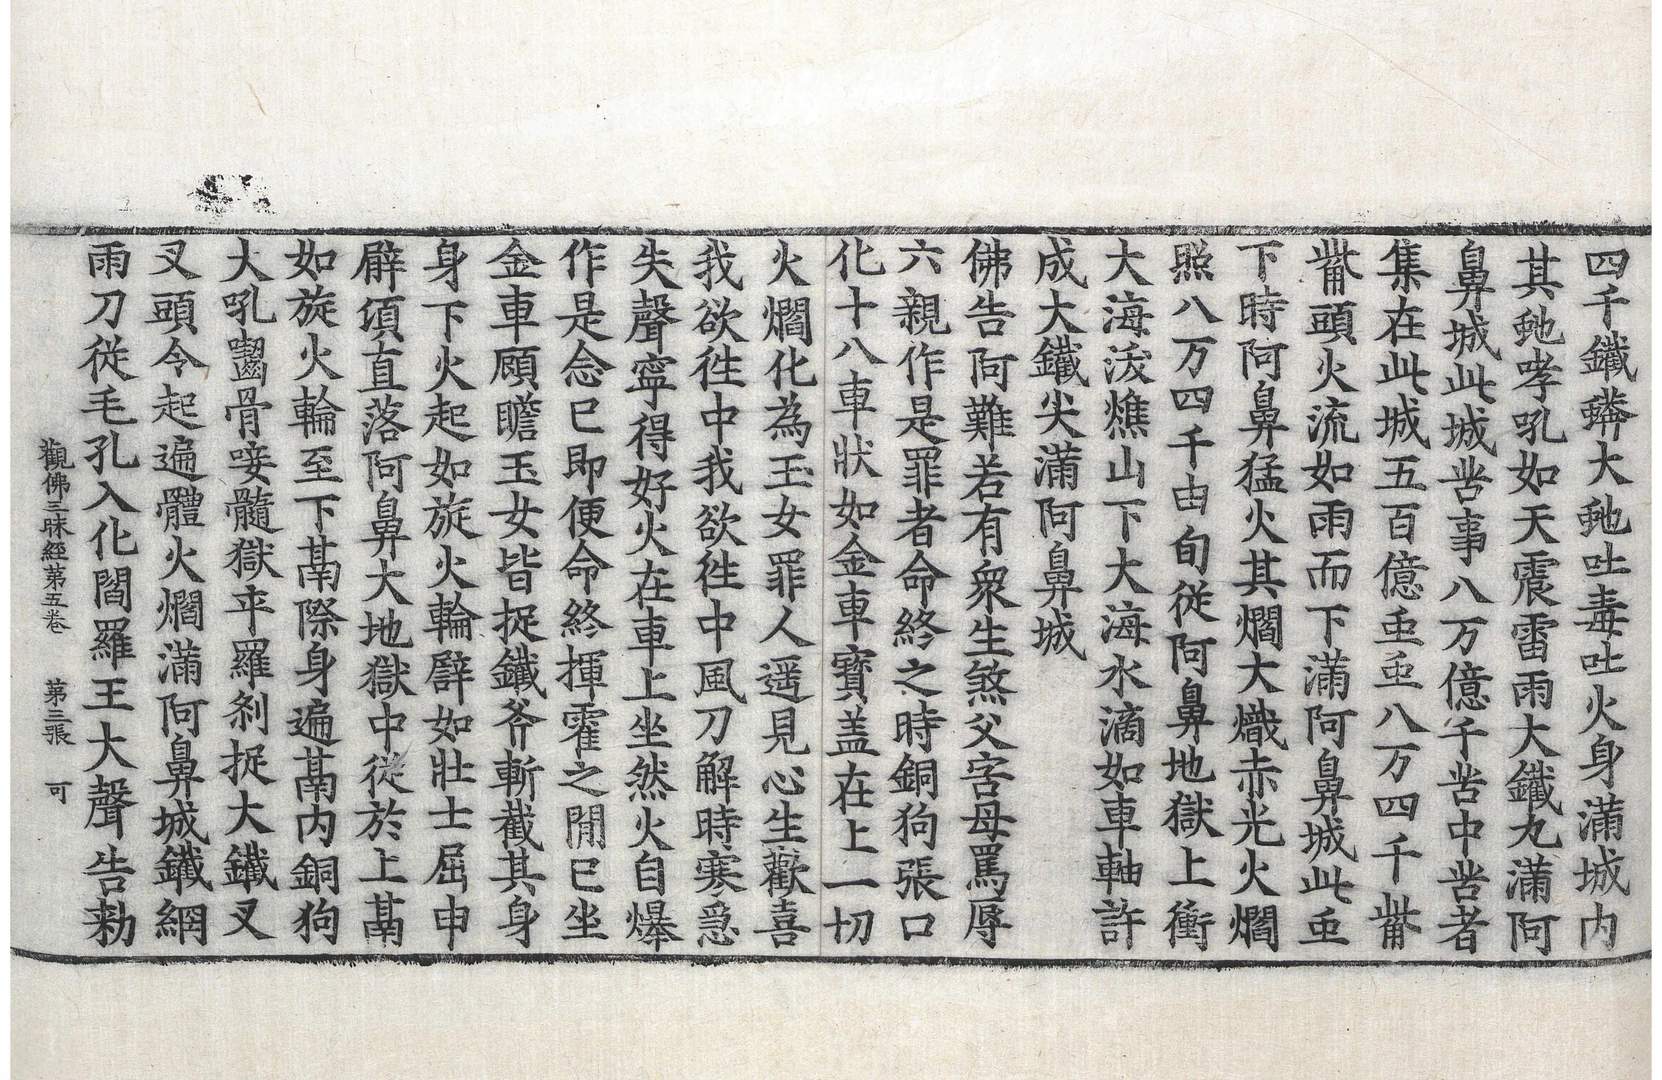 四千鐵蟒大虵吐毒吐火身滿城内
其虵哮吼如天震雷雨大鐵九滿阿
鼻城此城苦事八万億千苦中苦者
集在此城五百億䖝䖝八万四千觜
觜頭火流如雨而下滿阿鼻城此䖝
下時阿鼻猛火其爓大熾赤光火爓
照八万四千由旬從阿鼻地獄上衝
大海沃燋山下大海水滴如車軸許
成大鐵尖滿阿鼻城
佛告阿難若有衆生煞父害母罵辱
六親作是罪者命終之時銅狗張口
化十八車狀如金車寶盖在上一切
火爓化為玉女罪人遥見心生歡喜
我欲往中我欲往中風刀解時寒急
失聲寧得好火在車上坐然火自爆
作是念已即便命終揮霍之閒已坐
金車顧瞻玉女皆捉鐵斧斬截其身
身下火起如旋火輪譬如壯士屈申
臂頃直落阿鼻大地獄中從於上鬲
如旋火輪至下鬲際身遍鬲内銅狗
大吼齧骨唼髓獄卒羅剎捉大鐵叉
叉頭令起遍體火爓滿阿鼻城鐵網
雨刀從毛孔入化閻羅王大聲告勑
觀佛三昧經第五卷 第三張 可